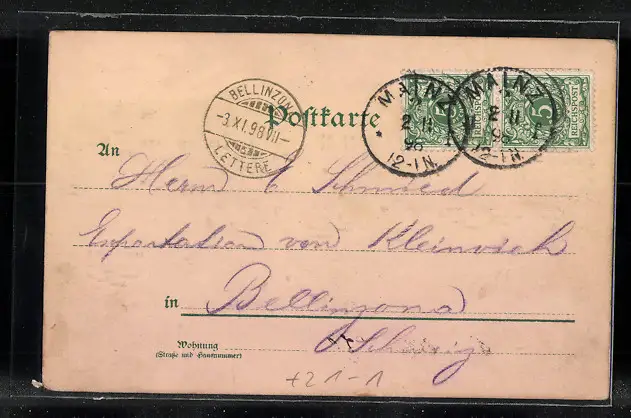 BELLINZONA
-3.XI.98 VII-
LETTERE
Postkarte
MAINZ
2 11
98
12-1N.
MAINZ
2 11
98
12-1N.
5
REICHSPOST
5
REICHSPOST
An
Herrn C Schmied
Exportation von Kleinvieh
in Bellinzona
Wohnung
(Straße und Hausnummer)
Schweiz
+21-1